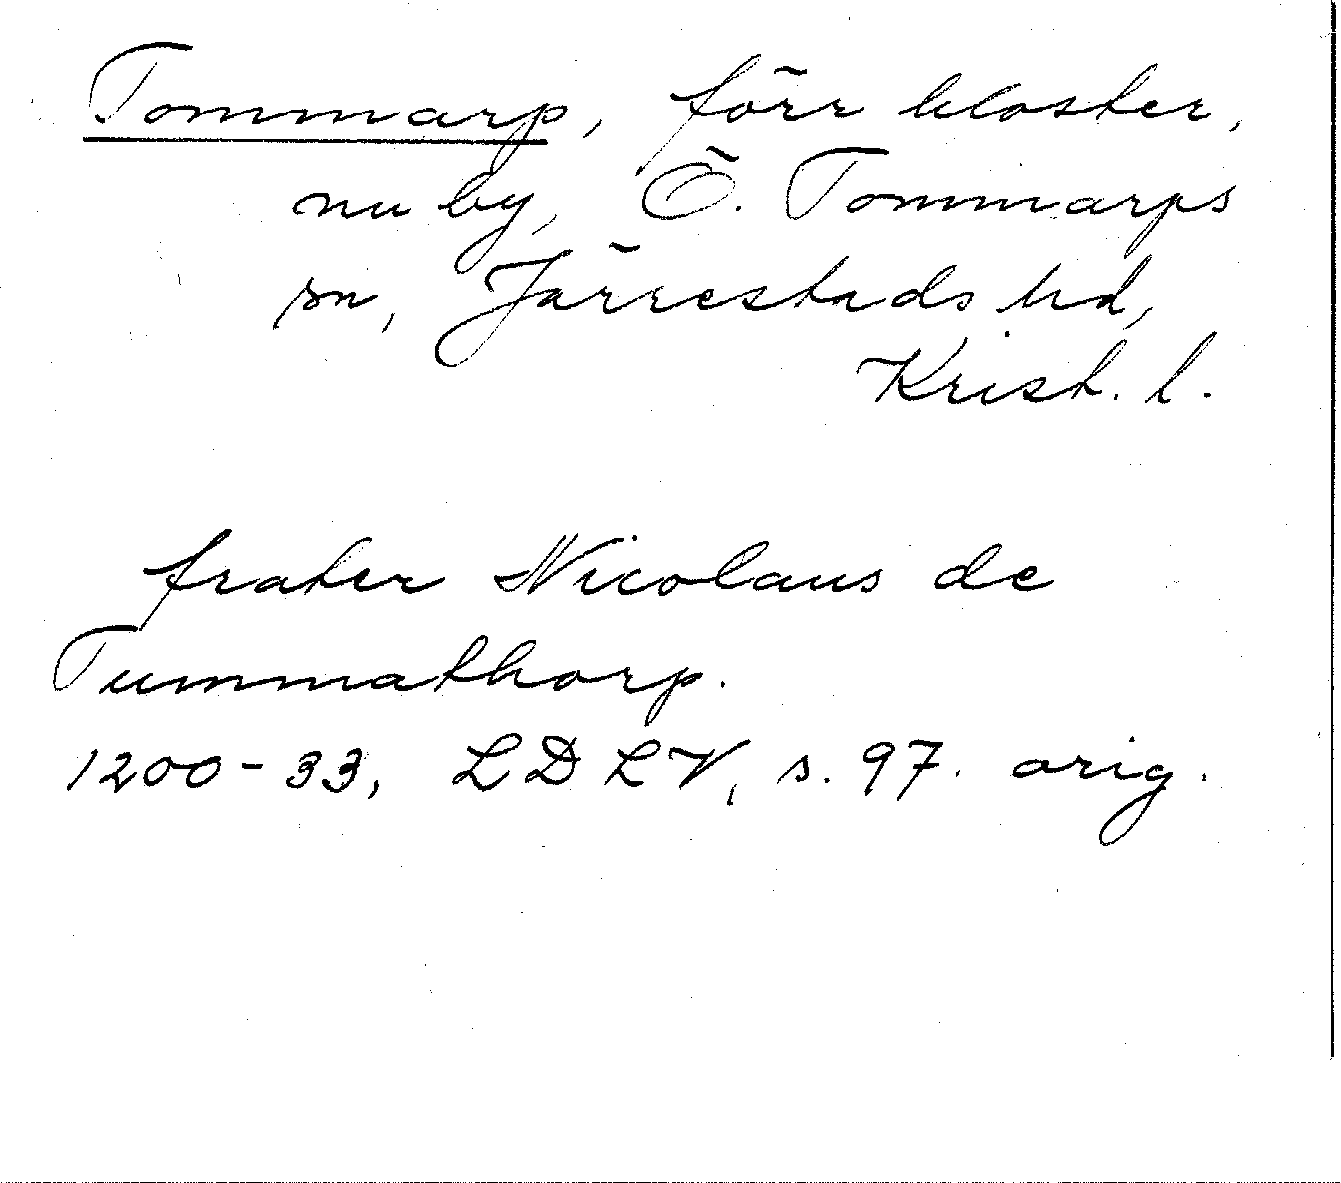 Tommarp, förr kloster,
nu by, Ö. Tommarps
sn, Järrestads hd,
Krist. l.
frater Nicolaus de
Tummathorp.
1200-33, LDLV, s. 97. orig.